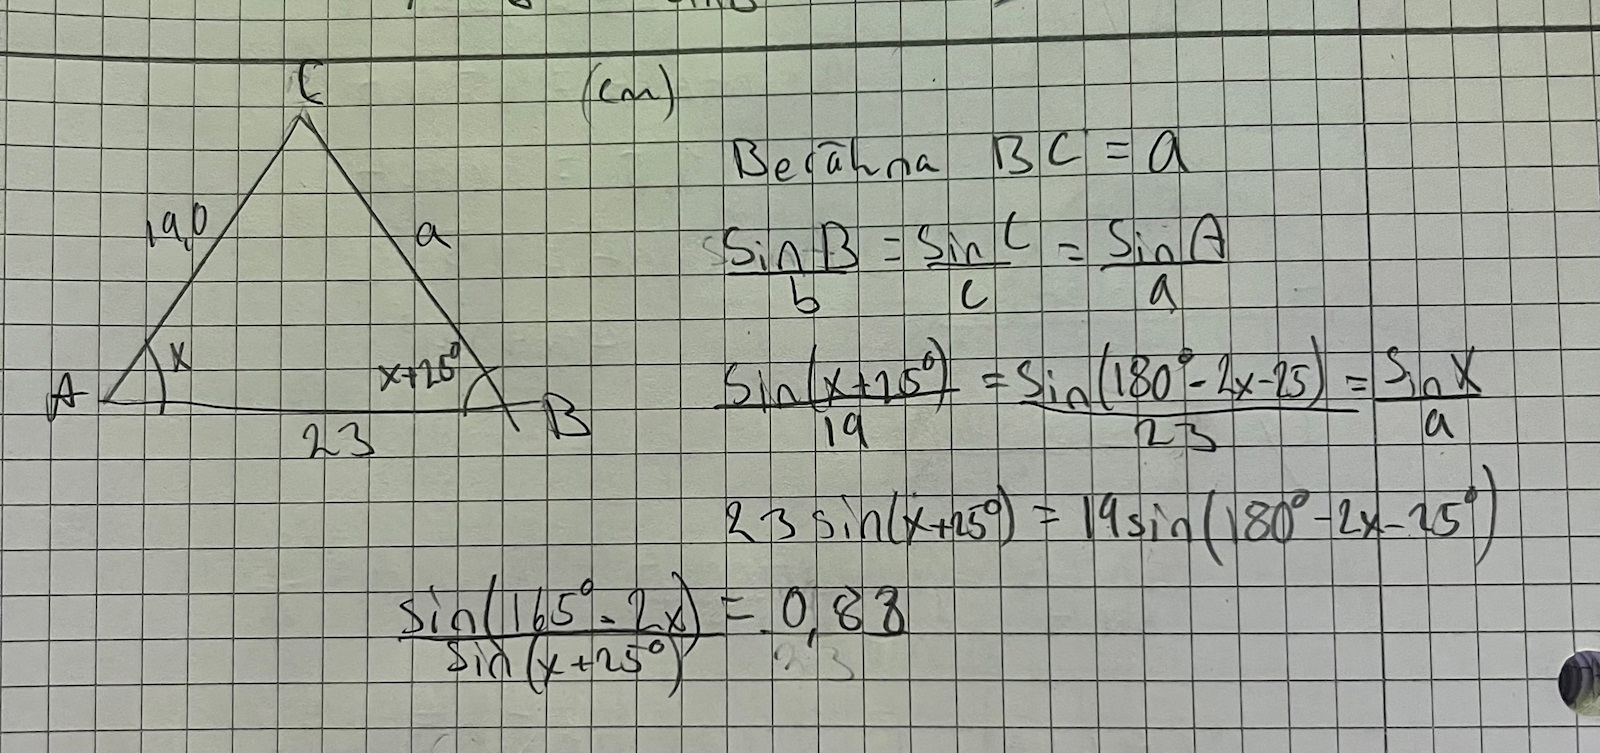 C
(cm)
Beräkna BC = a
19,0
a
sin B / b = sin C / c = sin A / a
x
x+25°
A
B
23
sin(x+25°) / 19 = sin(180°-2x-25) / 23 = sin x / a
23 sin(x+25°) = 19 sin(180°-2x-25°)
sin(165°-2x) / sin(x+25°) = 0,83